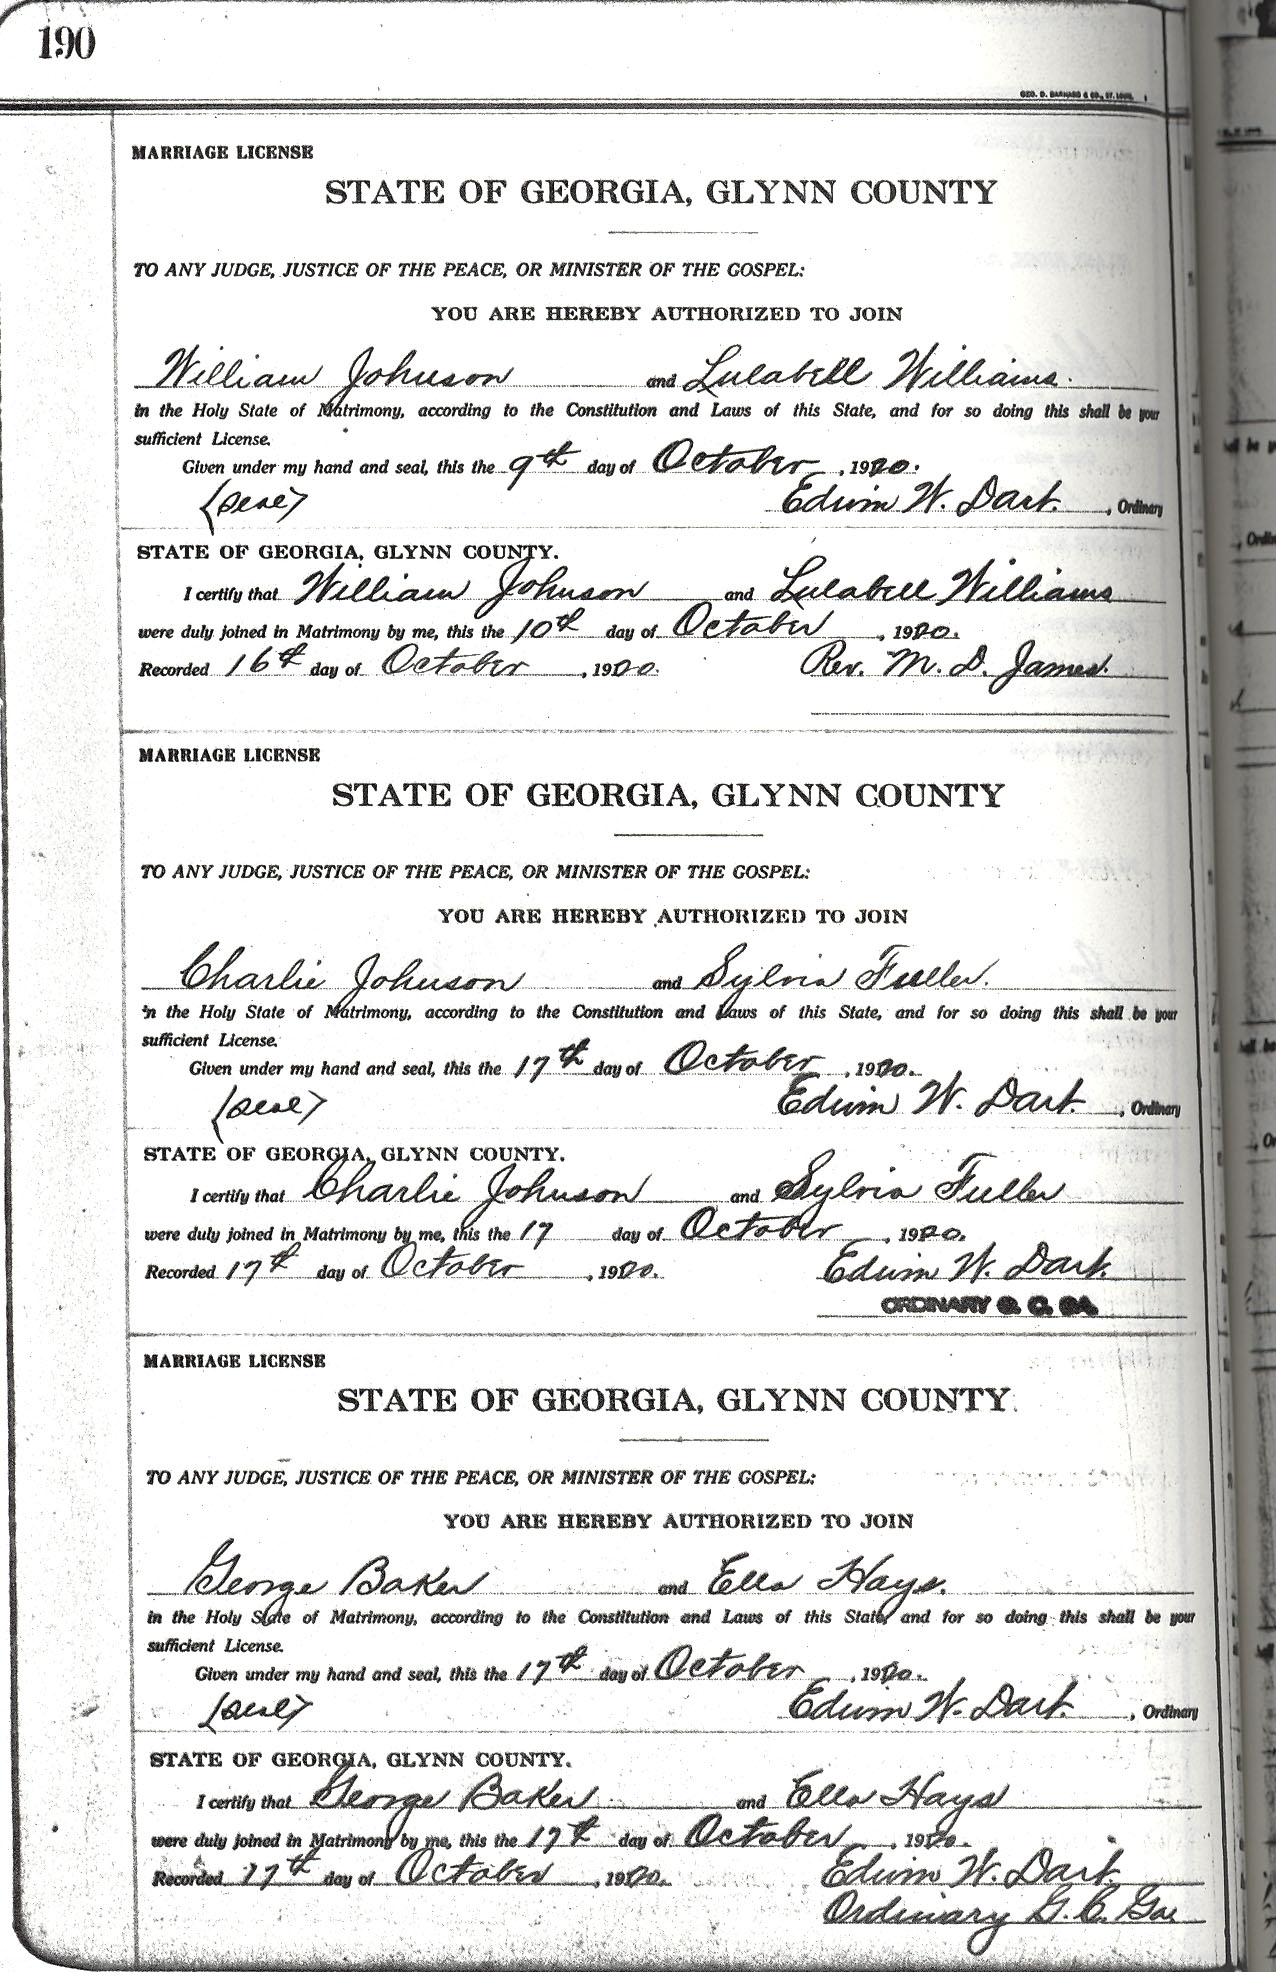 190
GEO. D. BARNARD & CO., ST. LOUIS.
MARRIAGE LICENSE
STATE OF GEORGIA, GLYNN COUNTY
TO ANY JUDGE, JUSTICE OF THE PEACE, OR MINISTER OF THE GOSPEL:
YOU ARE HEREBY AUTHORIZED TO JOIN
William Johnson and Lulabell Williams.
in the Holy State of Matrimony, according to the Constitution and Laws of this State, and for so doing this shall be your
sufficient License.
Given under my hand and seal, this the 9th day of October, 1920.
(seal) Edwin W. Dart., Ordinary
STATE OF GEORGIA, GLYNN COUNTY.
I certify that William Johnson and Lulabell Williams
were duly joined in Matrimony by me, this the 10th day of October, 1920.
Recorded 16th day of October, 1920. Rev. M. D. James.
MARRIAGE LICENSE
STATE OF GEORGIA, GLYNN COUNTY
TO ANY JUDGE, JUSTICE OF THE PEACE, OR MINISTER OF THE GOSPEL:
YOU ARE HEREBY AUTHORIZED TO JOIN
Charlie Johnson and Sylvia Fuller.
in the Holy State of Matrimony, according to the Constitution and Laws of this State, and for so doing this shall be your
sufficient License.
Given under my hand and seal, this the 17th day of October, 1920.
(seal) Edwin W. Dart., Ordinary
STATE OF GEORGIA, GLYNN COUNTY.
I certify that Charlie Johnson and Sylvia Fuller
were duly joined in Matrimony by me, this the 17 day of October, 1920.
Recorded 17th day of October, 1920. Edwin W. Dart.
ORDINARY G. C. GA.
MARRIAGE LICENSE
STATE OF GEORGIA, GLYNN COUNTY
TO ANY JUDGE, JUSTICE OF THE PEACE, OR MINISTER OF THE GOSPEL:
YOU ARE HEREBY AUTHORIZED TO JOIN
George Baker and Ella Hays.
in the Holy State of Matrimony, according to the Constitution and Laws of this State, and for so doing this shall be your
sufficient License.
Given under my hand and seal, this the 17th day of October, 1920.
(seal) Edwin W. Dart., Ordinary
STATE OF GEORGIA, GLYNN COUNTY.
I certify that George Baker and Ella Hays
were duly joined in Matrimony by me, this the 17th day of October, 1920.
Recorded 17th day of October, 1920. Edwin W. Dart.
Ordinary G. C. Ga